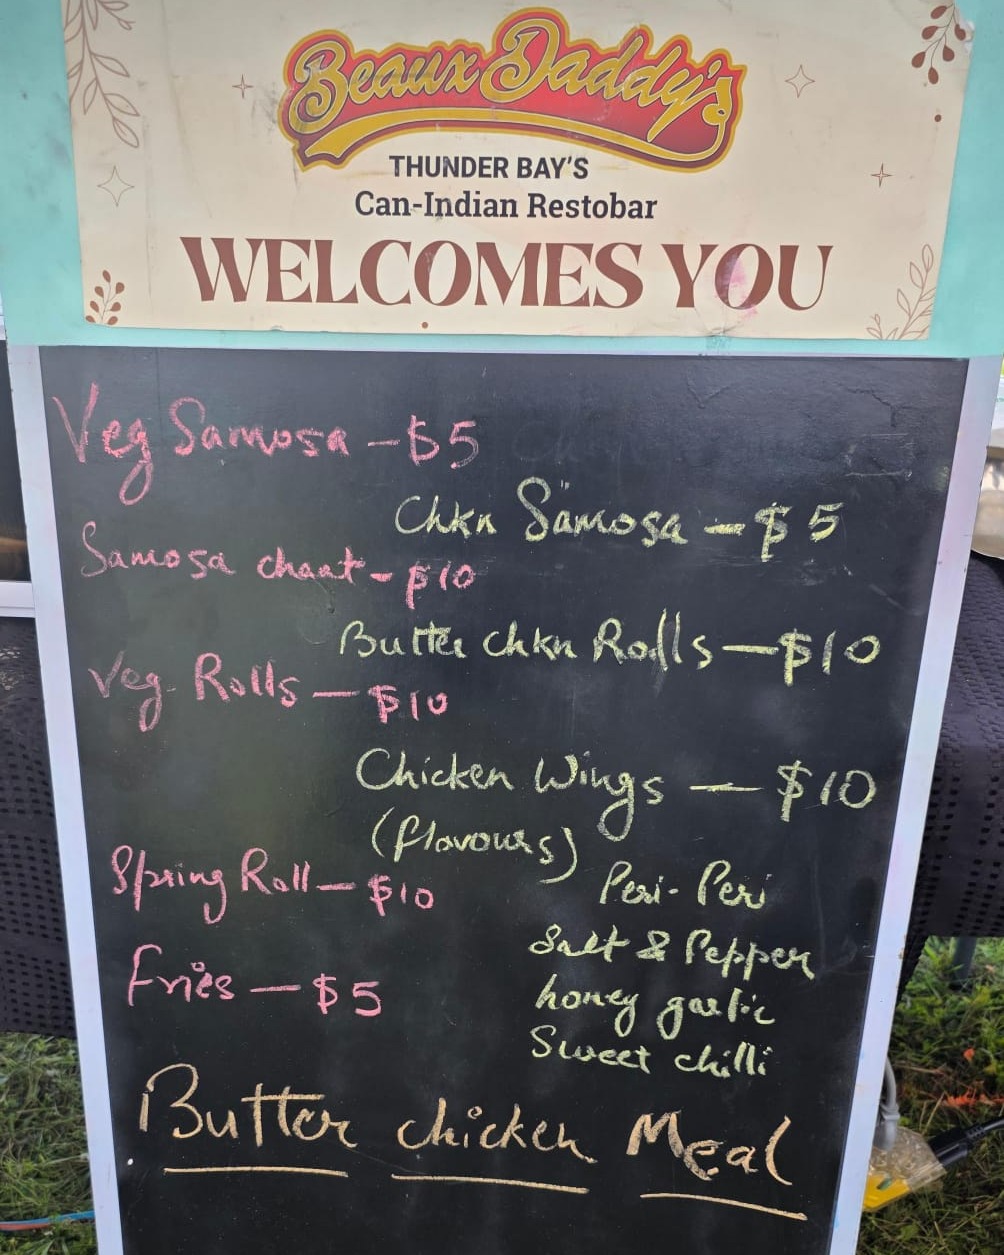 Beaux Daddy's
THUNDER BAY'S
Can-Indian Restobar
WELCOMES YOU
Veg Samosa - $5
Chkn Samosa - $5
Samosa chaat - $10
Butter chkn Rolls - $10
Veg. Rolls - $10
Chicken Wings - $10
(flavours)
Spring Roll - $10
Peri-Peri
Salt & Pepper
Fries - $5
honey garlic
Sweet chilli
Butter chicken Meal